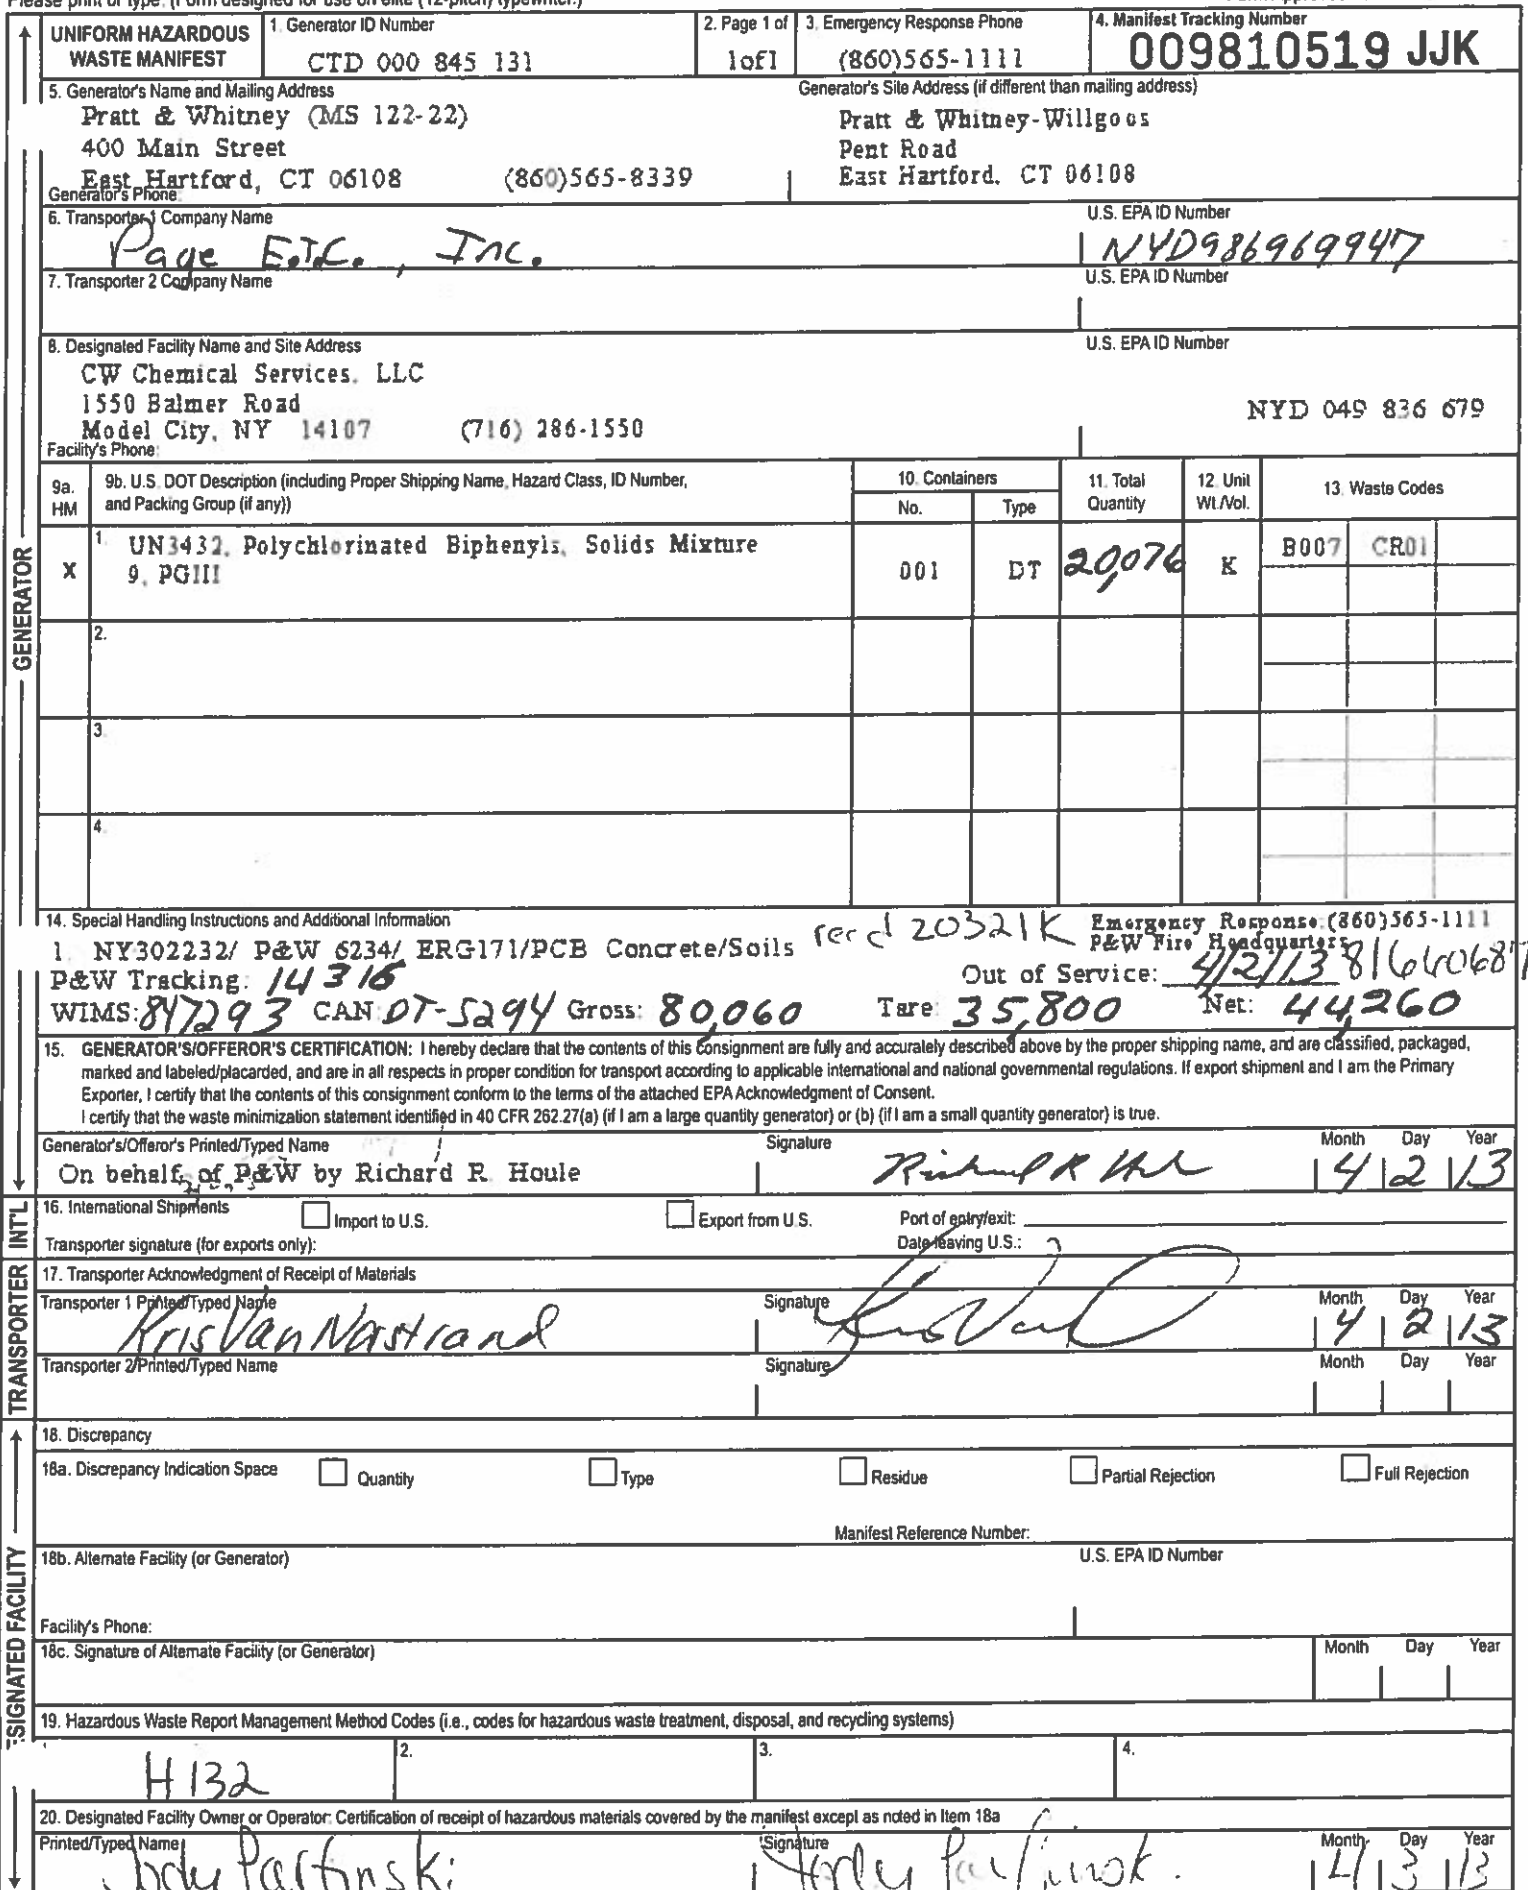 Please print or type. (Form designed for use on elite (12-pitch) typewriter.)
UNIFORM HAZARDOUS WASTE MANIFEST
1. Generator ID Number
CTD 000 845 131
2. Page 1 of
1of1
3. Emergency Response Phone
(860)565-1111
4. Manifest Tracking Number
009810519 JJK
GENERATOR
5. Generator's Name and Mailing Address
Pratt & Whitney (MS 122-22)
400 Main Street
East Hartford, CT 06108 (860)565-8339
Generator's Phone:
Generator's Site Address (if different than mailing address)
Pratt & Whitney-Willgoos
Pent Road
East Hartford, CT 06108
6. Transporter 1 Company Name
Page E.T.C., Inc.
U.S. EPA ID Number
NYD986969947
7. Transporter 2 Company Name
U.S. EPA ID Number
8. Designated Facility Name and Site Address
CW Chemical Services, LLC
1550 Balmer Road
Model City, NY 14107 (716) 286-1550
Facility's Phone:
U.S. EPA ID Number
NYD 049 836 679
9a. HM
9b. U.S. DOT Description (including Proper Shipping Name, Hazard Class, ID Number, and Packing Group (if any))
10. Containers
No.
Type
11. Total Quantity
12. Unit Wt./Vol.
13. Waste Codes
X
1. UN3432, Polychlorinated Biphenyls, Solids Mixture
9, PGIII
001
DT
20,076
K
B007 CR01
2.
3.
4.
14. Special Handling Instructions and Additional Information
recd 20321K
Emergency Response:(860)565-1111
P&W Fire Headquarters
1. NY302232/ P&W 6234/ ERG171/PCB Concrete/Soils
P&W Tracking: 14316
Out of Service: 4/2/13
WIMS: 847293 CAN: DT-5294 Gross: 80,060 Tare: 35,800 Net: 44,260
15. GENERATOR'S/OFFEROR'S CERTIFICATION: I hereby declare that the contents of this consignment are fully and accurately described above by the proper shipping name, and are classified, packaged,
marked and labeled/placarded, and are in all respects in proper condition for transport according to applicable international and national governmental regulations. If export shipment and I am the Primary
Exporter, I certify that the contents of this consignment conform to the terms of the attached EPA Acknowledgment of Consent.
I certify that the waste minimization statement identified in 40 CFR 262.27(a) (if I am a large quantity generator) or (b) (if I am a small quantity generator) is true.
Generator's/Offeror's Printed/Typed Name
Signature
Month Day Year
On behalf of P&W by Richard R. Houle
Richard R Houle
4 2 13
INT'L
16. International Shipments
Import to U.S.
Export from U.S.
Port of entry/exit:
Transporter signature (for exports only):
Date leaving U.S.:
TRANSPORTER
17. Transporter Acknowledgment of Receipt of Materials
Transporter 1 Printed/Typed Name
Signature
Month Day Year
Kris Van Nostrand
4 2 13
Transporter 2 Printed/Typed Name
Signature
Month Day Year
18. Discrepancy
18a. Discrepancy Indication Space
Quantity
Type
Residue
Partial Rejection
Full Rejection
Manifest Reference Number:
18b. Alternate Facility (or Generator)
U.S. EPA ID Number
Facility's Phone:
18c. Signature of Alternate Facility (or Generator)
Month Day Year
19. Hazardous Waste Report Management Method Codes (i.e., codes for hazardous waste treatment, disposal, and recycling systems)
H132
2.
3.
4.
20. Designated Facility Owner or Operator: Certification of receipt of hazardous materials covered by the manifest except as noted in Item 18a
Printed/Typed Name
Signature
Month Day Year
Jody Partinski
4 3 13